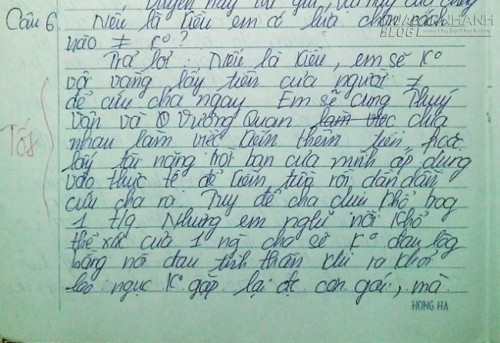 Câu 6
Nếu là Kiều em có lựa chọn cách
nào ≠ ko?
Trả lời: Nếu là Kiều, em sẽ ko
vội vàng lấy tiền của người ≠
để cứu cha ngay Em sẽ cùng Thúy
Vân và Vương Quan làm việc chia
nhau làm việc kiếm thêm tiền, hoặc
lấy tài năng trời ban của mình áp dụng
vào thực tế để kiếm tiền rồi dần dần
cứu cha ra. Tuy để cha chịu khổ
1 t/g Nhưng em nghĩ nỗi khổ
thể xác của 1 ng cha sẽ ko đau lòng
bằng nỗi đau tinh thần khi ra khỏi
lao ngục ko gặp lại đc con gái, mà
Tốt
BLOG
HONG HA